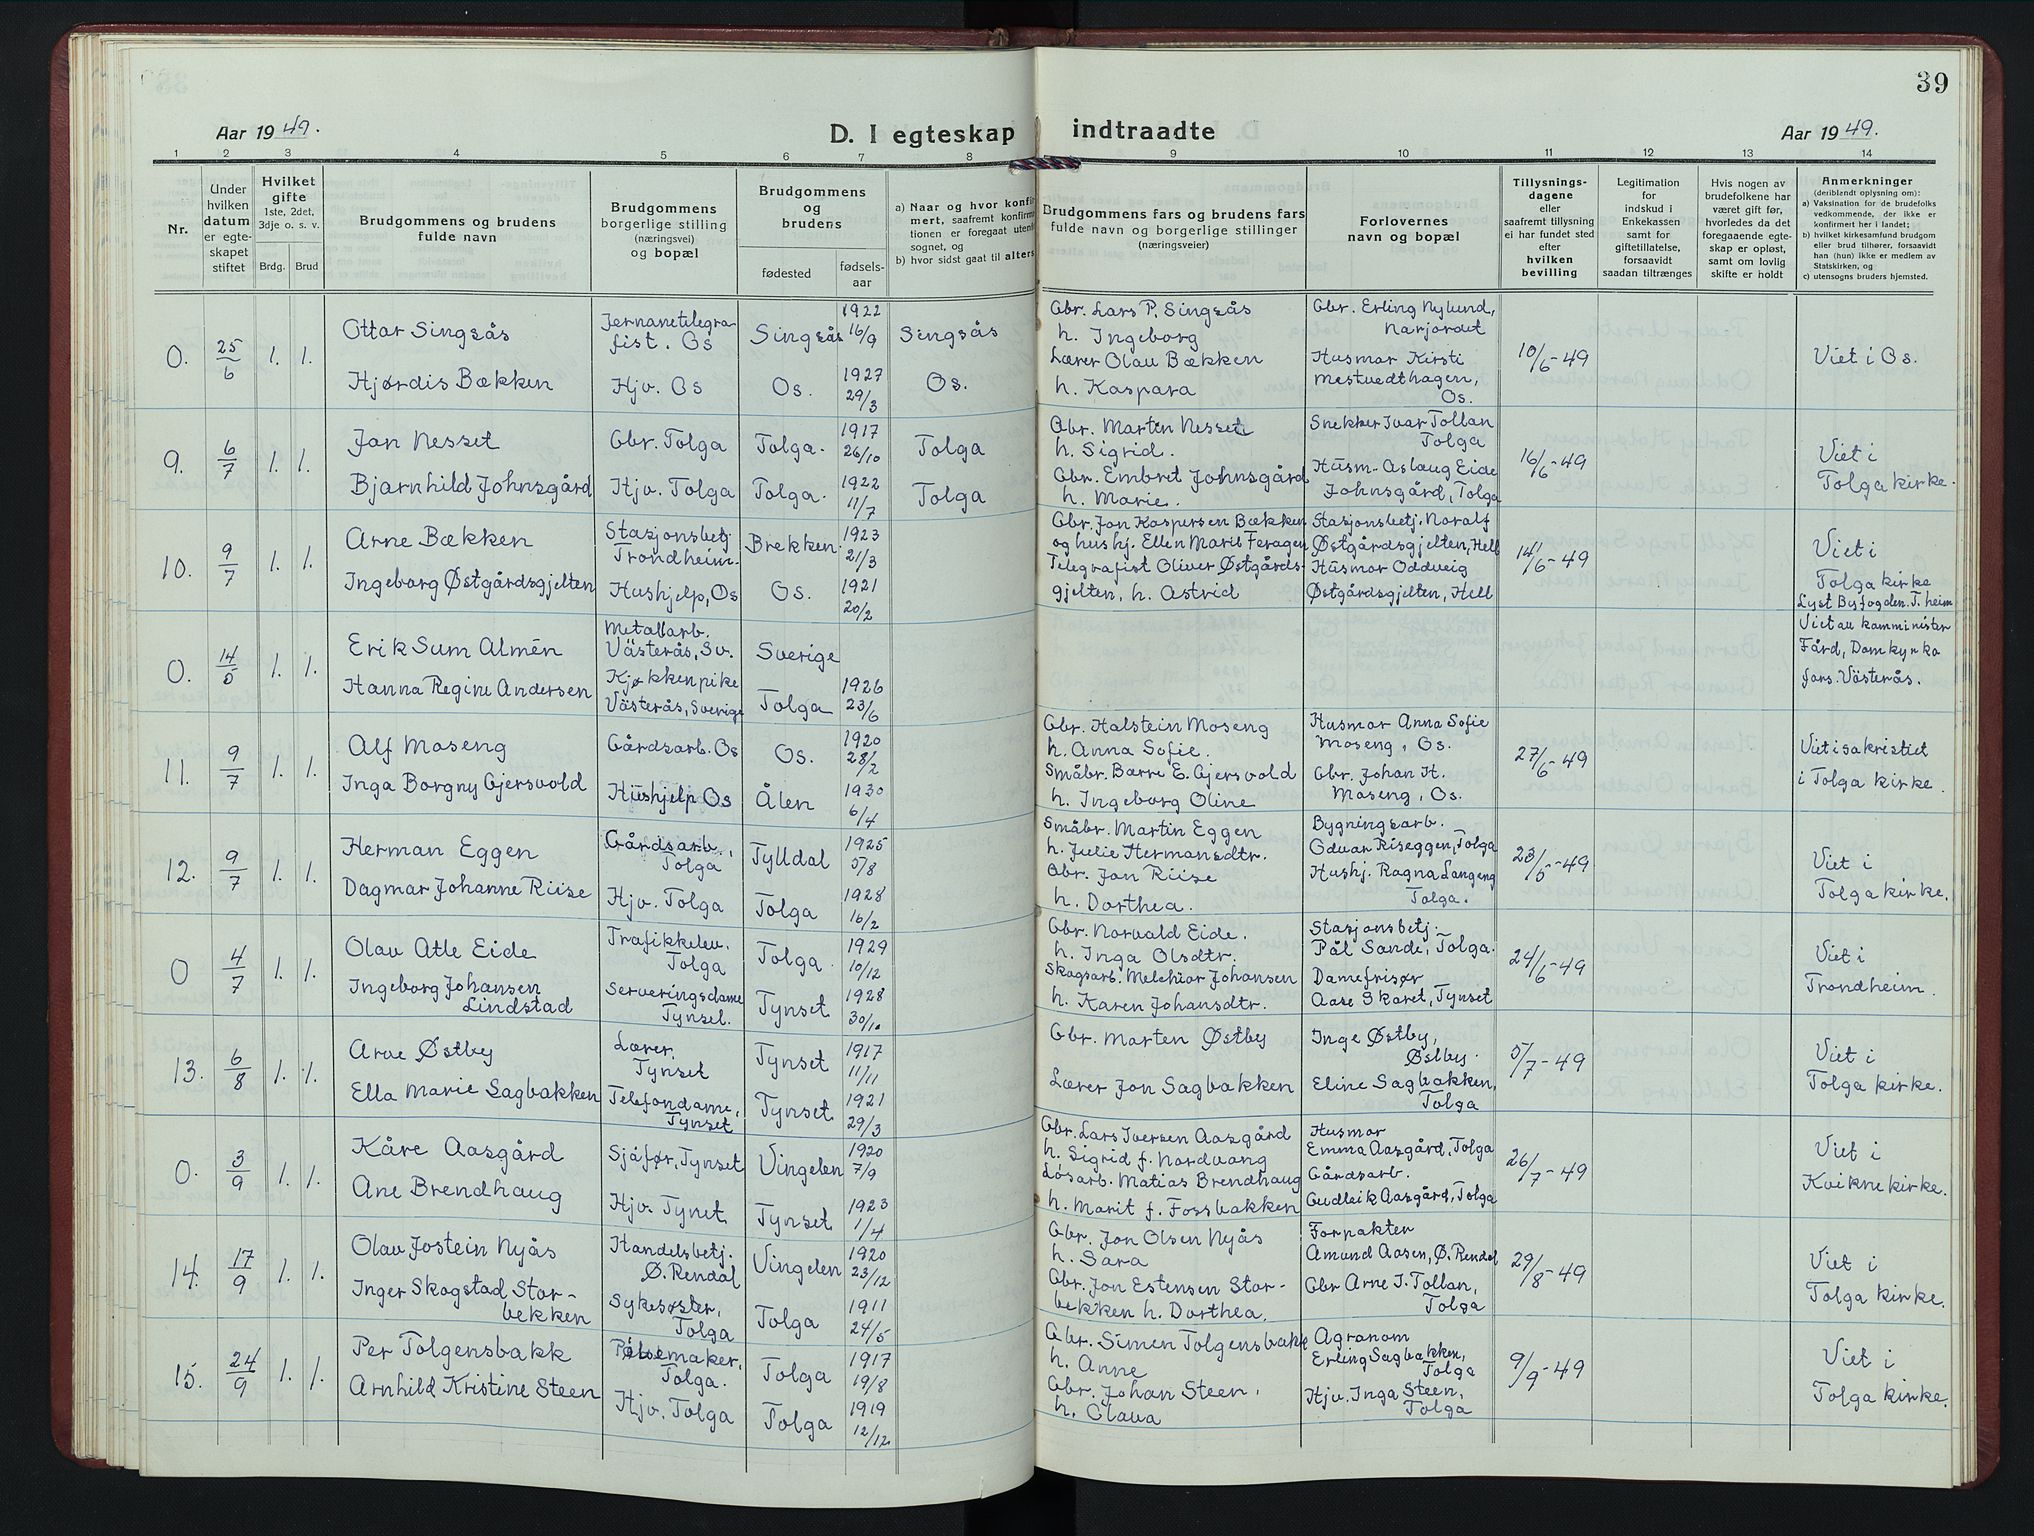 39
Aar 1949.
D. I egteskap indtraadte
Aar 1949.
1 2 3 4 5 6 7 8 9 10 11 12 13 14
Nr.
Under hvilken datum er egteskapet stiftet
Hvilket gifte 1ste, 2det, 3dje o. s. v.
Brdg. Brud
Brudgommens og brudens fulde navn
Brudgommens borgerlige stilling (næringsvei) og bopæl
Brudgommens og brudens
fødested
fødselsaar
a) Naar og hvor konfirmert, saafremt konfirmationen er foregaat utenfor sognet, og
b) hvor sidst gaat til alters
Brudgommens fars og brudens fars fulde navn og borgerlige stillinger (næringsveier)
Forlovernes navn og bopæl
Tillysningsdagene eller saafremt tillysning ei har fundet sted efter hvilken bevilling
Legitimation for indskud i Enkekassen samt for giftetillatelse, forsaavidt saadan tiltrænges
Hvis nogen av brudefolkene har været gift før, hvorledes da det foregaaende egteskap er opløst, samt om lovlig skifte er holdt
Anmerkninger (deriblandt oplysning om):
a) Vaksination for de brudefolks vedkommende, der ikke er konfirmert her i landet;
b) hvilket kirkesamfund brudgom eller brud tilhører, forsaavidt han (hun) ikke er medlem av Statskirken, og
c) utensogns bruders hjemsted.
0. 25/6 1. 1.
Ottar Singsås
Jernanetilegrafist. Os
Singsås
1922 16/9
Singsås
Gbr. Lars P. Singsås
h. Ingeborg
Gbr. Erling Nylund,
Narjordet
10/6-49
Viet i Os.
Hjørdis Bækken
Hjv. Os
Os.
1927 29/3
Os.
Lærer Olav Bækken
h. Kaspara
Husmor Kirsti
Mestvedthagen,
Os.
9. 6/7 1. 1.
Jon Nesset
Gbr. Tolga
Tolga.
1917 26/10
Tolga
Gbr. Marten Nesset
h. Sigrid.
Snekker Ivar Tollan
Tolga
16/6-49
Viet i
Tolga kirke.
Bjarnhild Johnsgård
Hjv. Tolga
Tolga.
1922 11/7
Tolga
Gbr. Embret Johnsgård
h. Marie.
Husm. Aslaug Eide
Johnsgård, Tolga
10. 9/7 1. 1.
Arne Bækken
Stasjonsbetj.
Trondheim.
Brekken.
1923 21/3
Gbr. Jon Kaspersen Bækken
og hushj. Ellen Marit Feragen
Stasjonsbetj. Noralf
Østgårdsgjelten, Hell
14/6-49
Viet i
Tolga kirke
Lyst Byfogden. T. heim
Ingeborg Østgårdsgjelten
Hushjelp, Os
Os.
1921 20/2
Telegrafist Oliver Østgårds-
gjelten, h. Astrid
Husmor Oddveig
Østgårdsgjelten, Hell
0. 14/5 1. 1.
Erik Sum Almén
Metallarb.
Västerås, Sv.
Sverige
Viet au kamminister
Fård, Domkyrko
fors. Västerås.
Hanna Regine Andersen
Kjøkkenpike
Västerås, Sverige
Tolga
1926 23/6
11. 9/7 1. 1.
Alf Moseng
Gårdsarb. Os
Os.
1920 28/2
Gbr. Halstein Moseng
h. Anna Sofie.
Husmor Anna Sofie
Moseng, Os.
27/6-49
Viet i sakristiet
i Tolga kirke.
Inga Borgny Gjersvold
Hushjelp Os
Ålen
1930 6/4
Småbr. Barre E. Gjersvold
h. Ingeborg Oline
Gbr. Johan H.
Moseng, Os.
12. 9/7 1. 1.
Herman Eggen
Gårdsarb.,
Tolga
Tylldal
1925 5/8
Småbr. Martin Eggen
h. Julie Hermansdtr.
Bygningsarb.
Odvar Riseggen, Tolga
23/5-49
Viet i
Tolga kirke.
Dagmar Johanne Riise
Hjv. Tolga
Tolga
1928 16/2
Gbr. Jon Riise
h. Dorthea.
Hushj. Ragna Langeng
Tolga.
0 4/7 1. 1.
Olav Atle Eide
Trafikkelev.
Tolga
Tolga.
1929 10/12
Gbr. Norvald Eide.
h. Inga Olsdtr.
Stasjonsbetj.
Pål Sande, Tolga.
24/6-49
Viet i
Trondheim.
Ingeborg Johansen
Lindstad
Serveringsdame
Tynset.
Tynset
1928 30/10
Skogsarb. Melchior Johansen
h. Karen Johansdtr.
Damefrisør
Aase Skaret, Tynset
13. 6/8 1. 1.
Arve Østby
Lærer,
Tynset
Tynset
1917 11/11
Gbr. Marten Østby
Inge Østby,
Østby.
5/7-49
Viet i
Tolga kirke.
Ella Marie Sagbakken
Telefondame,
Tynset
Tynset
1921 29/3
Lærer Jon Sagbakken
Eline Sagbakken,
Tolga
0. 3/9 1. 1.
Kåre Aasgård
Sjåfør, Tynset
Vingelen
1920 7/9
Gbr. Lars Iversen Aasgård
h. Sigrid f. Nordvang
Husmor
Emma Aasgård, Tolga
26/7-49
Viet i
Kvikne kirke.
Ane Brendhaug
Hjv. Tynet
Tynset
1923 1/4
Løsarb. Matias Brendhaug
h. Marit f. Fossbakken
Gårdsarb.
Gudleik Aasgård, Tolga
14. 17/9 1. 1.
Olav Jostein Nyås
Handelsbetj.
Ø. Rendal
Vingelen
1920 23/12
Gbr. Jon Olsen Nyås
h. Sara
Forpakter
Amund Aasen, Ø. Rendal
29/8-49
Viet i
Tolga kirke.
Inger Skogstad Stor-
bekken
Sykesøster,
Tolga
Tolga
1911 24/5
Gbr. Jon Estensen Stor-
bekken h. Dorthea.
Gbr Arne J. Tollan,
Tolga
15. 24/9 1. 1.
Per Tolgensbakk
Pølsemaker,
Tolga.
Tolga
1917 19/8
Gbr. Simen Tolgensbakk
h. Anne
Agronom
Erling Sagbakken,
Tolga
9/9-49
Viet i
Tolga kirke.
Arnhild Kristine Steen
Hjv. Tolga
Tolga
1919 12/12
Gbr. Johan Steen,
h. Olava
Hjv. Inga Steen,
Tolga